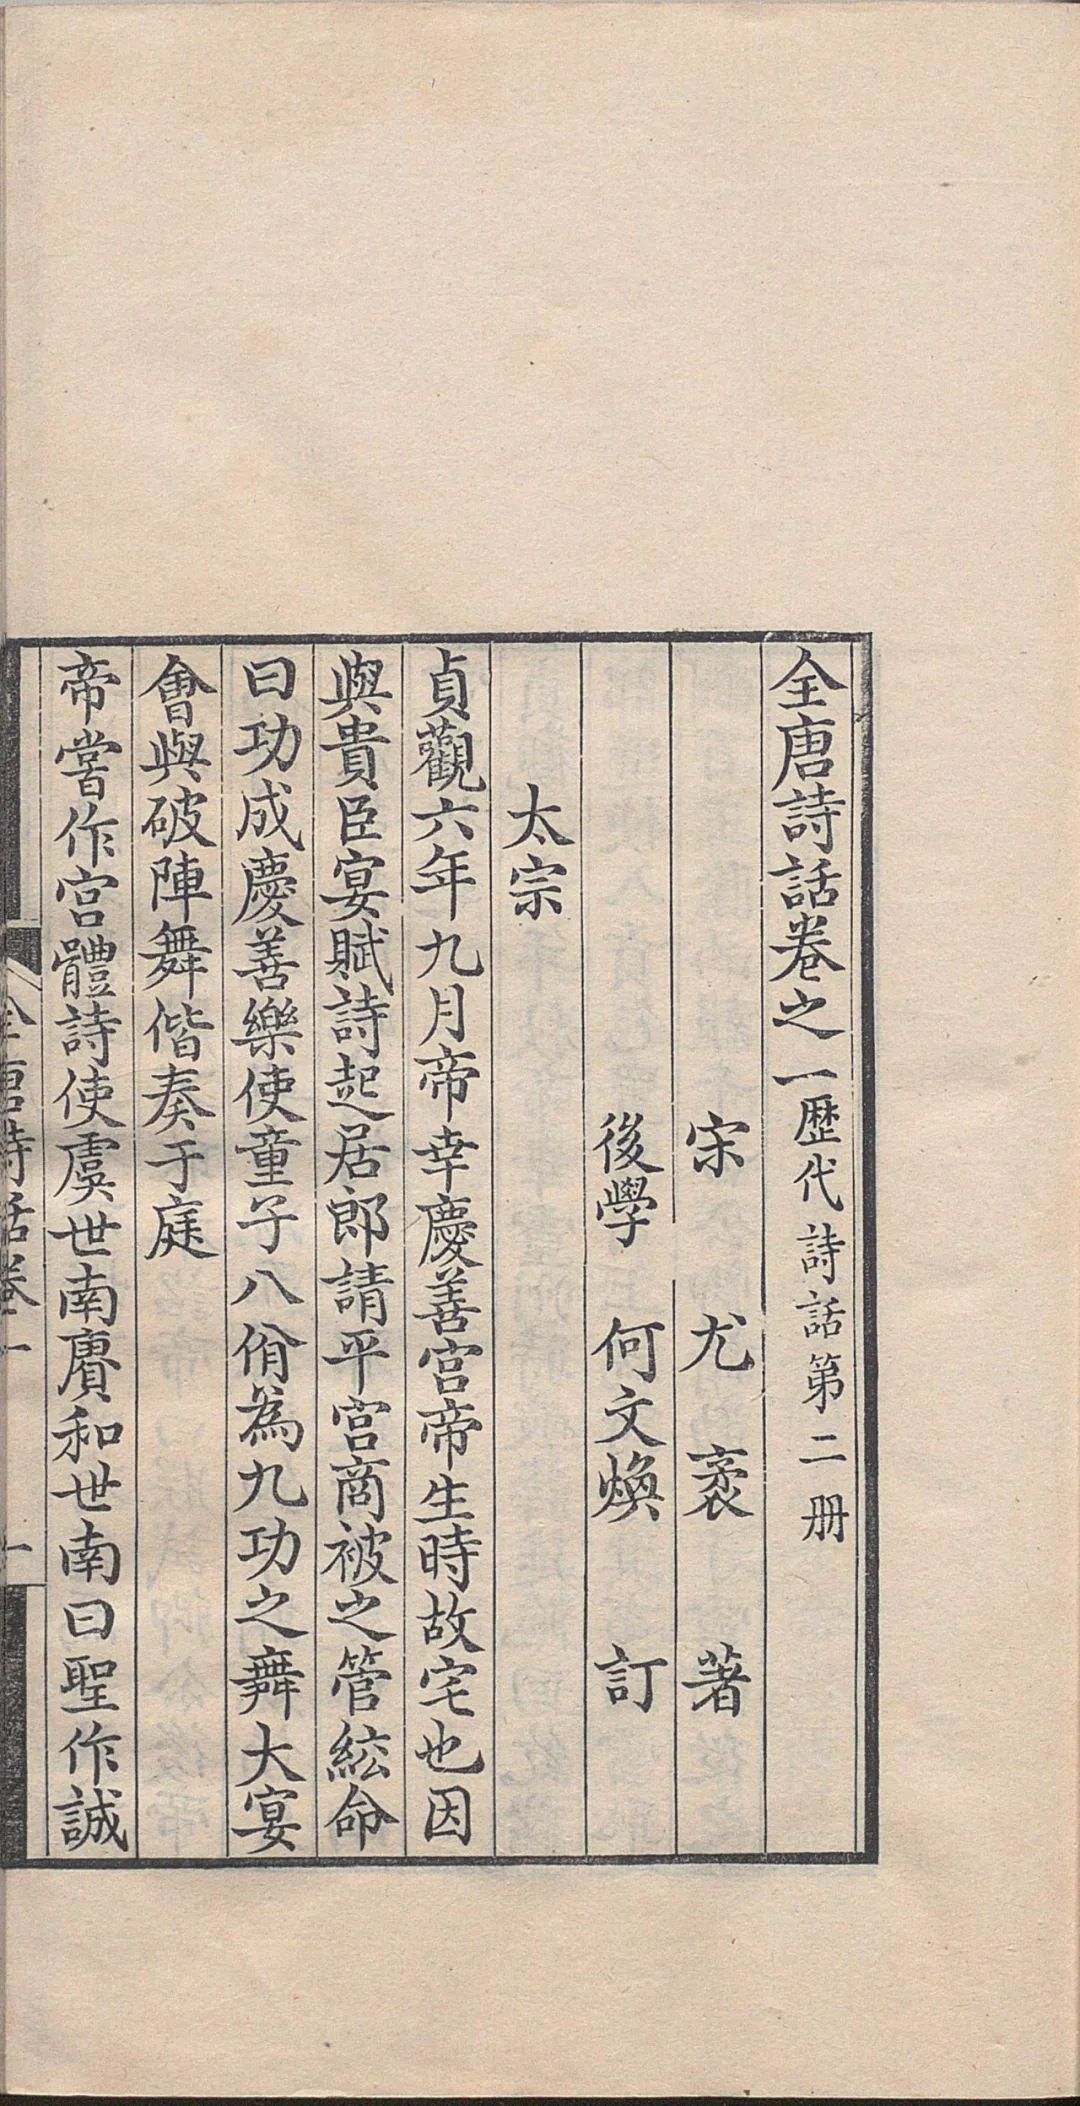 全唐詩話卷之一 歷代詩話第二册
宋 尤袤 著
後學 何文煥 訂
太宗
貞觀六年九月帝幸慶善宮帝生時故宅也因
與貴臣宴賦詩起居郎請平宮商被之管絃命
曰功成慶善樂使童子八佾為九功之舞大宴
會與破陣舞偕奏于庭
帝嘗作宮體詩使虞世南賡和世南曰聖作誠
全唐詩話卷一 一